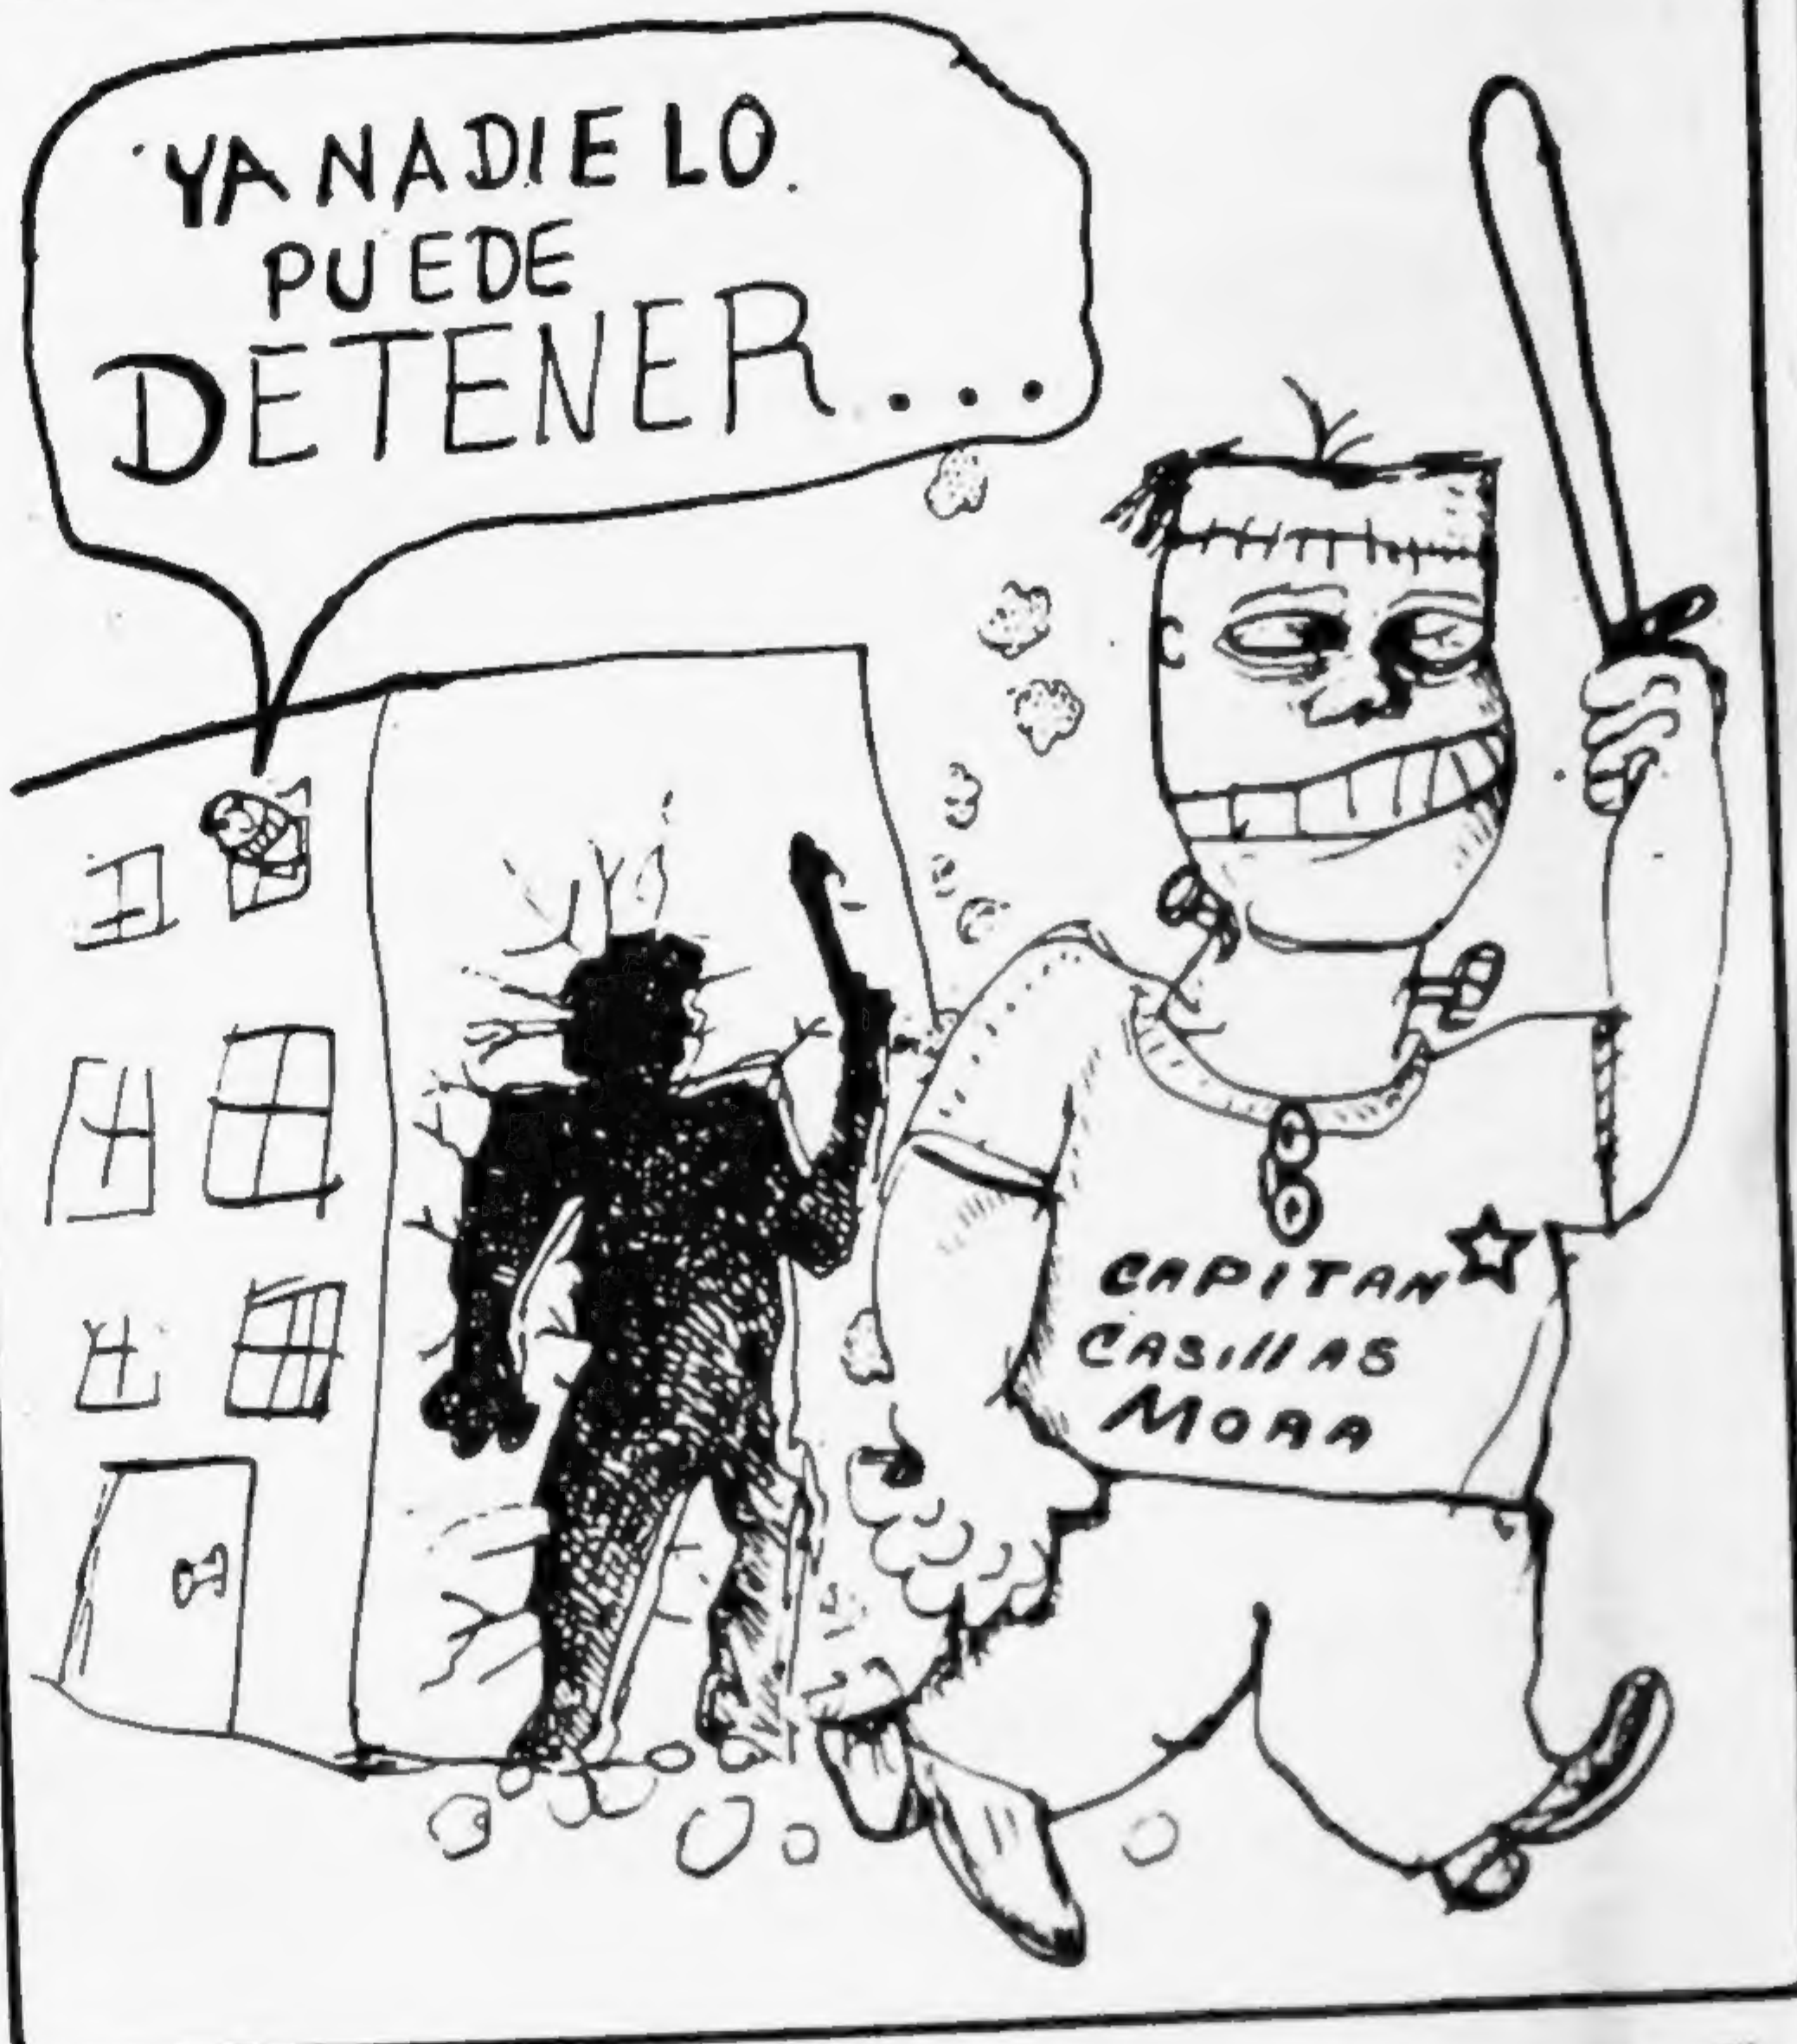 YA NADIE LO
PUEDE
DETENER...
CAPITAN
CASILLAS
MORA